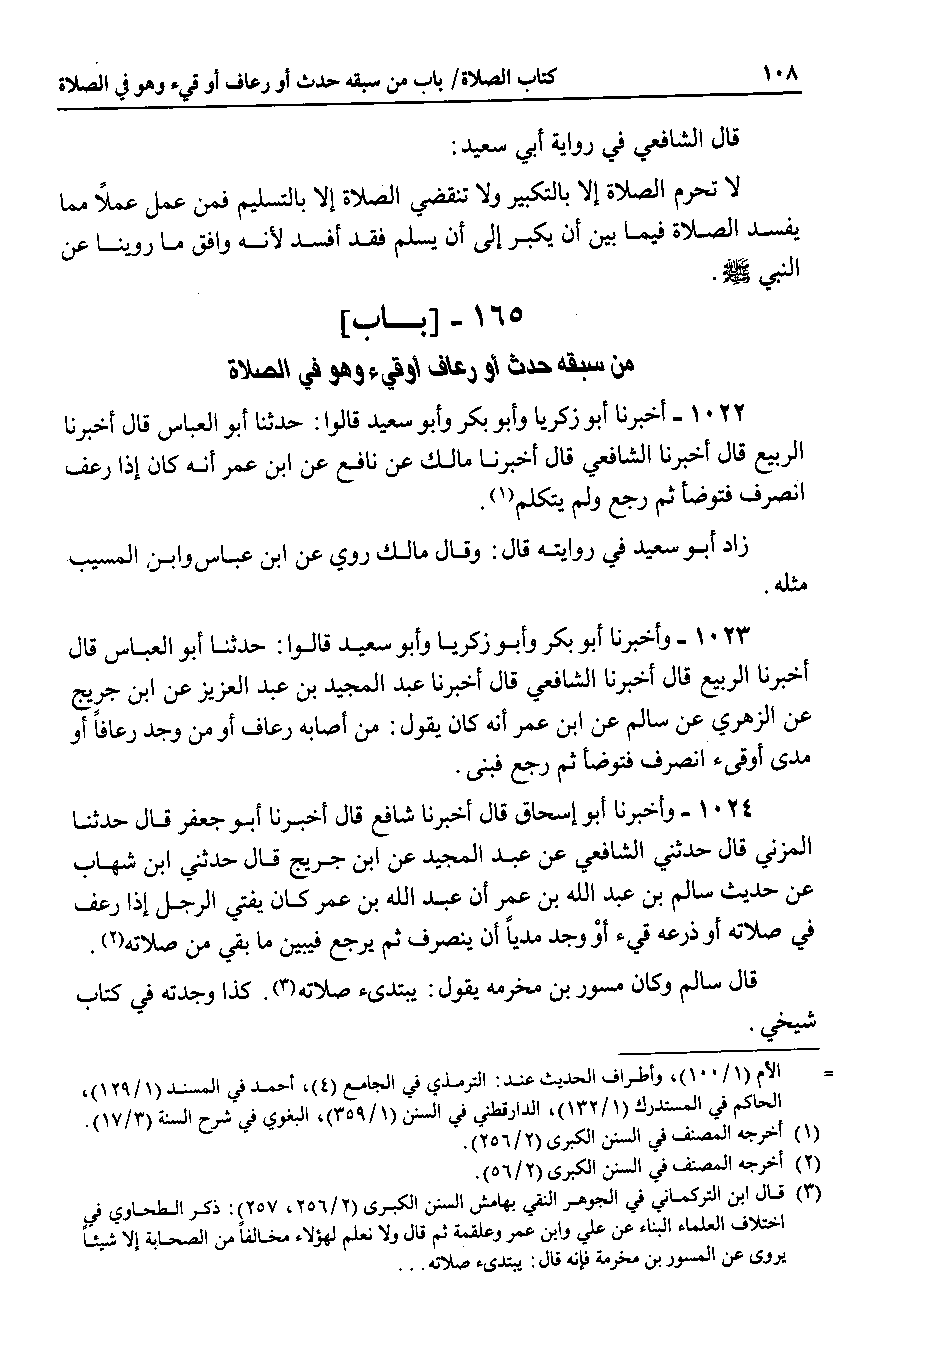 ١٠٨ كتاب الصلاة/ باب من سبقه حدث أو رعاف أو قيء وهو في الصلاة
قال الشافعي في رواية أبي سعيد:
لا تحرم الصلاة إلا بالتكبير ولا تنقضي الصلاة إلا بالتسليم فمن عمل عملاً مما
يفسد الصلاة فيما بين أن يكبر إلى أن يسلم فقد أفسد لأنه وافق ما روينا عن
النبي ﷺ.
١٦٥ - [باب]
من سبقه حدث أو رعاف أوقيء وهو في الصلاة
١٠٢٢ - أخبرنا أبو زكريا وأبو بكر وأبو سعيد قالوا: حدثنا أبو العباس قال أخبرنا
الربيع قال أخبرنا الشافعي قال أخبرنا مالك عن نافع عن ابن عمر أنه كان إذا رعف
انصرف فتوضأ ثم رجع ولم يتكلم(١).
زاد أبو سعيد في روايته قال: وقال مالك روي عن ابن عباس وابن المسيب
مثله.
١٠٢٣ - وأخبرنا أبو بكر وأبو زكريا وأبو سعيد قالوا: حدثنا أبو العباس قال
أخبرنا الربيع قال أخبرنا الشافعي قال أخبرنا عبد المجيد بن عبد العزيز عن ابن جريج
عن الزهري عن سالم عن ابن عمر أنه كان يقول: من أصابه رعاف أو من وجد رعافاً أو
مدى أوقيء انصرف فتوضأ ثم رجع فبنى.
١٠٢٤ - وأخبرنا أبو إسحاق قال أخبرنا شافع قال أخبرنا أبو جعفر قال حدثنا
المزني قال حدثني الشافعي عن عبد المجيد عن ابن جريج قال حدثني ابن شهاب
عن حديث سالم بن عبد الله بن عمر أن عبد الله بن عمر كان يفتي الرجل إذا رعف
في صلاته أو ذرعه قيء أوْ وجد مدياً أن ينصرف ثم يرجع فيبين ما بقي من صلاته(٢).
قال سالم وكان مسور بن مخرمه يقول: يبتدىء صلاته(٣). كذا وجدته في كتاب
شيخي.
= الأم (١/ ١٠٠)، وأطراف الحديث عند: الترمذي في الجامع (٤)، أحمد في المسند (١/ ١٢٩)،
الحاكم في المستدرك (١/ ١٣٢)، الدارقطني في السنن (١/ ٣٥٩)، البغوي في شرح السنة (٣/ ١٧).
(١) أخرجه المصنف في السنن الكبرى (٢/ ٢٥٦).
(٢) أخرجه المصنف في السنن الكبرى (٢/ ٥٦).
(٣) قال ابن التركماني في الجوهر النقي بهامش السنن الكبرى (٢/ ٢٥٦، ٢٥٧): ذكر الطحاوي في
اختلاف العلماء البناء عن علي وابن عمر وعلقمة ثم قال ولا نعلم لهؤلاء مخالفاً من الصحابة إلا شيئاً
يروى عن المسور بن مخرمة فإنه قال: يبتدىء صلاته...